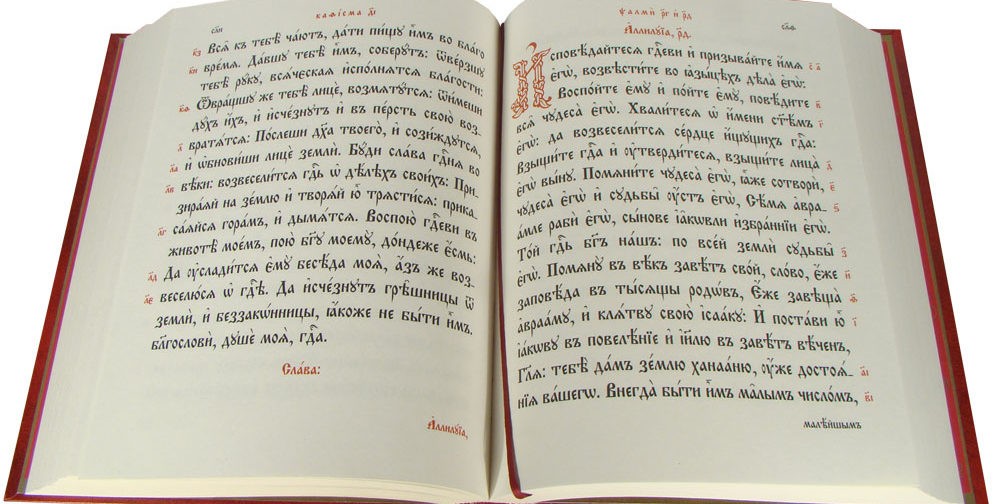 каѳі́сма д҃і
с҃ли
к҃з Всѧ̑ къ тебѣ̀ ча́ютъ, да́ти пи́щꙋ и҆̀мъ во бл҃го
к҃и вре́мѧ. Да́вшꙋ тебѣ̀ и҆̀мъ, соберꙋ́тъ: ѿве́рзшꙋ
тебѣ̀ рꙋ́кꙋ, всѧ́чєскаѧ и҆спо́лнѧтсѧ бл҃гости:
к҃ѳ Ѿвра́щшꙋ же тебѣ̀ лицѐ, возмѧтꙋ́тсѧ: ѿи́меши
дꙋ́хъ и҆́хъ, и҆ и҆сче́знꙋтъ и҆ въ пе́рсть свою̀ воз-
л҃ вратѧ́тсѧ: По́слеши дх҃а твоего̀, и҆ сози́ждꙋтсѧ,
л҃а и҆ ѡ҆бнови́ши лицѐ землѝ. Бꙋ́ди сла́ва гдⷭ҇нѧ во
л҃в вѣ́ки: возвесели́тсѧ гдⷭ҇ь ѡ҆ дѣ́лѣхъ свои́хъ: При-
зира́ѧй на зе́млю и҆ творѧ́й ю҆̀ трѧсти́сѧ: прика-
л҃г са́ѧйсѧ гора́мъ, и҆ дымѧ́тсѧ. Воспою̀ гдⷭ҇еви въ
животѣ̀ мое́мъ, пою̀ бг҃ꙋ моемꙋ̀, до́ндеже є҆́смь:
л҃д Да ᲂу҆слади́тсѧ є҆мꙋ̀ бесѣ́да моѧ̀, а҆́зъ же воз-
л҃є веселю́сѧ ѡ҆ гдⷭ҇ѣ. Да и҆сче́знꙋтъ грѣ̑шницы ѿ
землѝ, и҆ беззакѡ́нницы, ꙗ҆́коже не бы́ти и҆̀мъ.
бл҃гословѝ, дꙋшѐ моѧ̀, гдⷭ҇а.
Сла́ва:
А҆ллилꙋ́їа,
ѱалмѝ р҃г и҆ р҃д
с҃лѳ
А҆ллилꙋ́їа, р҃д.
И҆сповѣ́дайтесѧ гдⷭ҇еви и҆ призыва́йте и҆́мѧ а҃
є҆гѡ̀, возвѣсти́те во ꙗ҆зы́цѣхъ дѣла̀ є҆гѡ̀:
Воспо́йте є҆мꙋ̀ и҆ по́йте є҆мꙋ̀, повѣ́дите в҃
всѧ̑ чꙋдеса̀ є҆гѡ̀. Хвали́тесѧ ѡ҆ и҆́мени ст҃ѣмъ г҃
є҆гѡ̀: да возвесели́тсѧ се́рдце и҆́щꙋщихъ гдⷭ҇а:
Взыщи́те гдⷭ҇а и҆ ᲂу҆тверди́тесѧ, взыщи́те лица̀ д҃
є҆гѡ̀ вы́нꙋ. Помѧни́те чꙋдеса̀ є҆гѡ̀, ꙗ҆̀же сотворѝ, є҃
чꙋдеса̀ є҆гѡ̀ и҆ сꙋдьбы̑ ᲂу҆́стъ є҆гѡ̀, Сѣ́мѧ а҆вра- ѕ҃
а́мле рабѝ є҆гѡ̀, сы́нове і҆а́кѡвли и҆збра́ннїи є҆гѡ̀.
То́й гдⷭ҇ь бг҃ъ на́шъ: по все́й землѝ сꙋдьбы̑ з҃
є҆гѡ̀. Помѧнꙋ̀ въ вѣ́къ завѣ́тъ сво́й, сло́во, є҆́же и҃
заповѣ́да въ ты́сѧщы родѡ́въ, Є҆́же завѣща̀ ѳ҃
а҆враа́мꙋ, и҆ клѧ́твꙋ свою̀ і҆саа́кꙋ: И҆ поста́ви ю҆̀ і҃
і҆а́кѡвꙋ въ повелѣ́нїе и҆ і҆и҃лю въ завѣ́тъ вѣ́ченъ,
Гл҃ѧ: тебѣ̀ да́мъ зе́млю ханаа́ню, ᲂу҆́же достоѧ́- а҃і
нїѧ ва́шегѡ. Внегда̀ бы́ти и҆̀мъ ма̑лымъ число́мъ, в҃і
малѣ́йшымъ